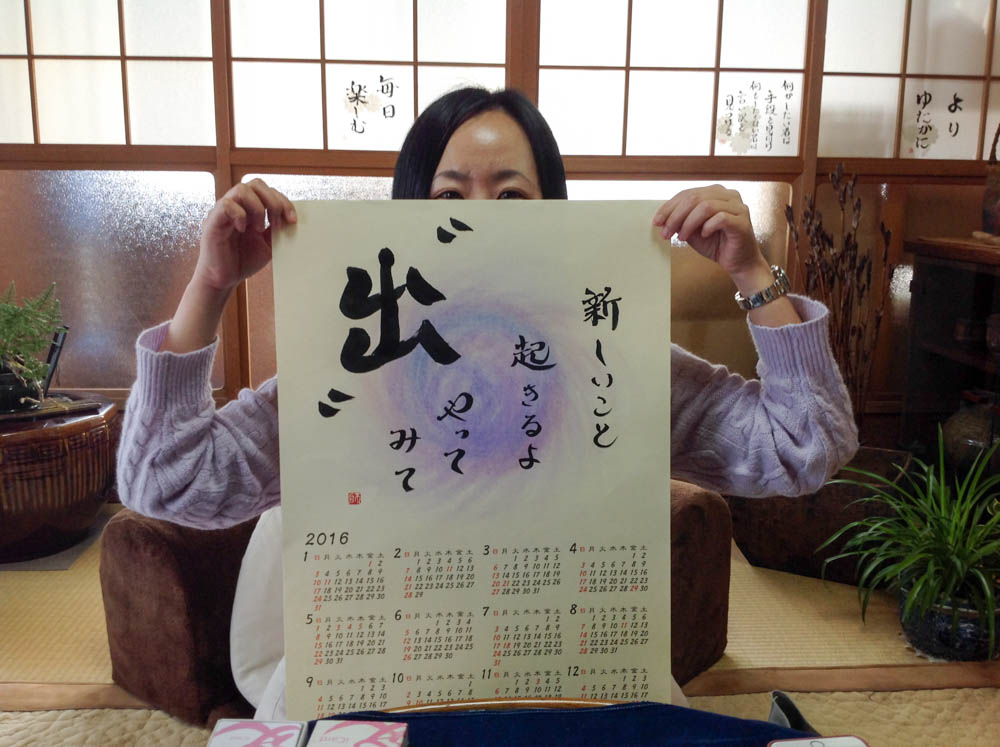 毎日
楽しむ
より
ゆたかに
新しいこと
起きるよ
やって
みて
"出"
2016
1 日 月 火 水 木 金 土
1 2
3 4 5 6 7 8 9
10 11 12 13 14 15 16
17 18 19 20 21 22 23
24 25 26 27 28 29 30
31
2 日 月 火 水 木 金 土
1 2 3 4 5 6
7 8 9 10 11 12 13
14 15 16 17 18 19 20
21 22 23 24 25 26 27
28 29
3 日 月 火 水 木 金 土
1 2 3 4 5
6 7 8 9 10 11 12
13 14 15 16 17 18 19
20 21 22 23 24 25 26
27 28 29 30 31
4 日 月 火 水 木 金 土
1 2
3 4 5 6 7 8 9
10 11 12 13 14 15 16
17 18 19 20 21 22 23
24 25 26 27 28 29 30
5 日 月 火 水 木 金 土
1 2 3 4 5 6 7
8 9 10 11 12 13 14
15 16 17 18 19 20 21
22 23 24 25 26 27 28
29 30 31
6 日 月 火 水 木 金 土
1 2 3 4
5 6 7 8 9 10 11
12 13 14 15 16 17 18
19 20 21 22 23 24 25
26 27 28 29 30
7 日 月 火 水 木 金 土
1 2
3 4 5 6 7 8 9
10 11 12 13 14 15 16
17 18 19 20 21 22 23
24 25 26 27 28 29 30
31
8 日 月 火 水 木 金 土
1 2 3 4 5 6
7 8 9 10 11 12 13
14 15 16 17 18 19 20
21 22 23 24 25 26 27
28 29 30 31
9 日 月 火 水 木 金 土
1 2 3
4 5 6 7 8 9 10
10 日 月 火 水 木 金 土
1
2 3 4 5 6 7 8
11 日 月 火 水 木 金 土
1 2 3 4 5
6 7 8 9 10 11 12
12 日 月 火 水 木 金 土
1 2 3
4 5 6 7 8 9 10